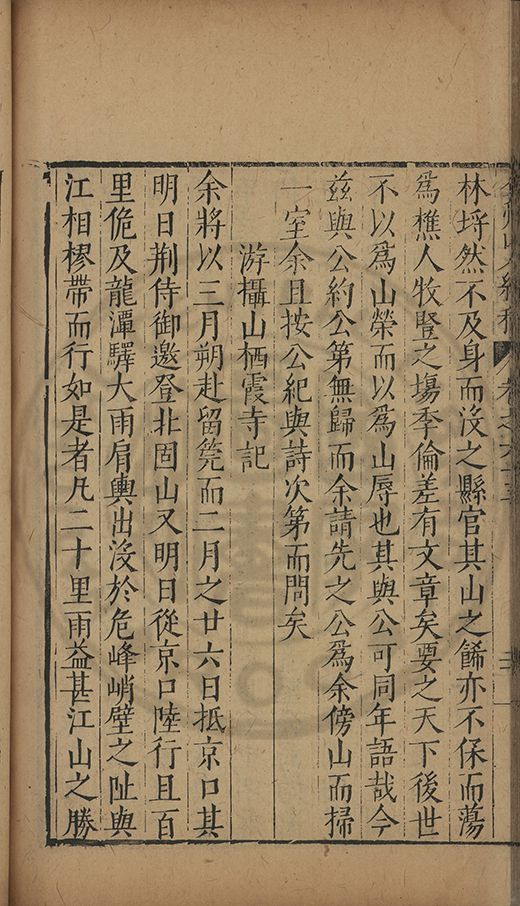 林埒然不及身而沒之縣官其山之餙亦不保而蕩
爲樵人牧豎之塲季倫差有文章矣要之天下後世
不以爲山榮而以爲山辱也其與公可同年語哉今
兹與公約公第無歸而余請先之公爲余傍山而掃
一室余且按公紀與詩次第而問矣
游攝山栖霞寺記
余將以三月朔赴留筦而二月之廿六日抵京口其
明日荆侍御邀登北固山又明日從京口陸行且百
里佹及龍潭驛大雨肩輿出沒於危峰峭壁之趾與
江相樛帶而行如是者凡二十里雨益甚江山之勝